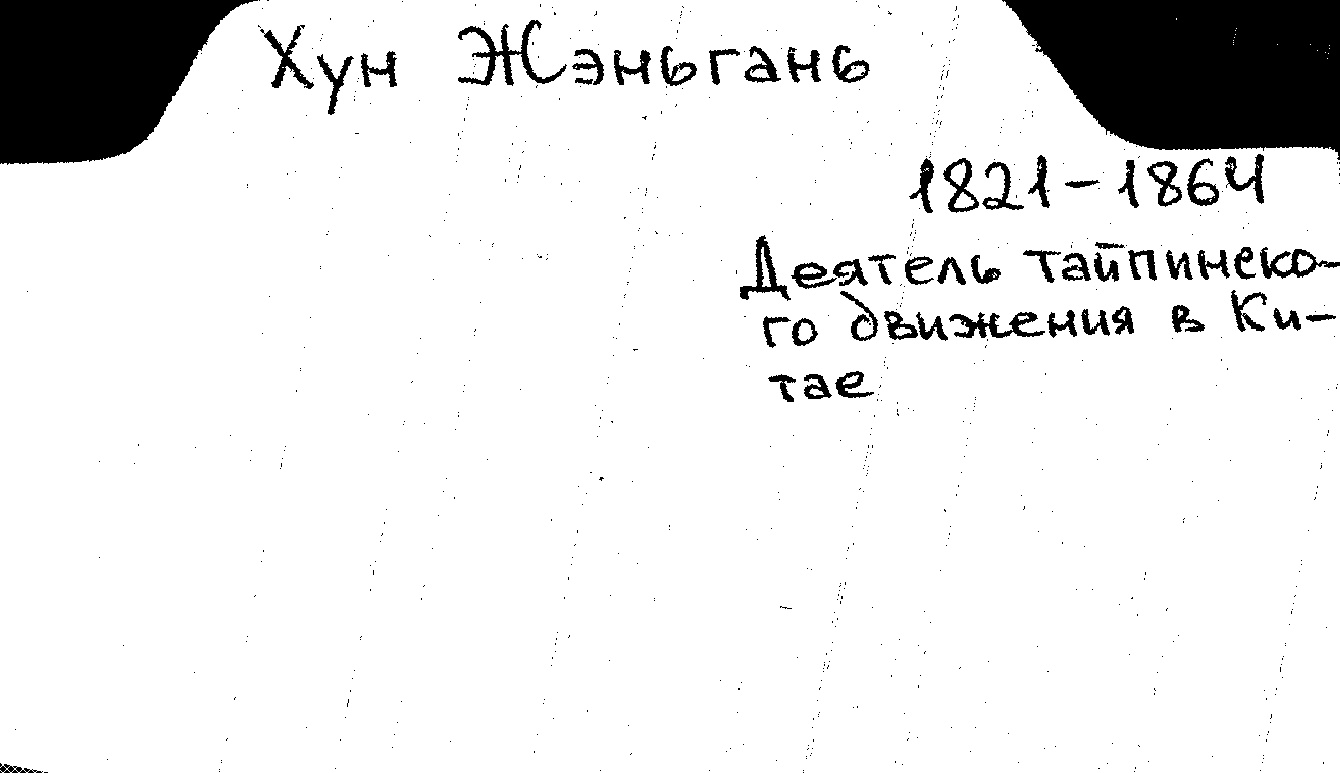 Хун Жэньгань
1821-1864
Деятель тайпинско-
го движения в Ки-
тае